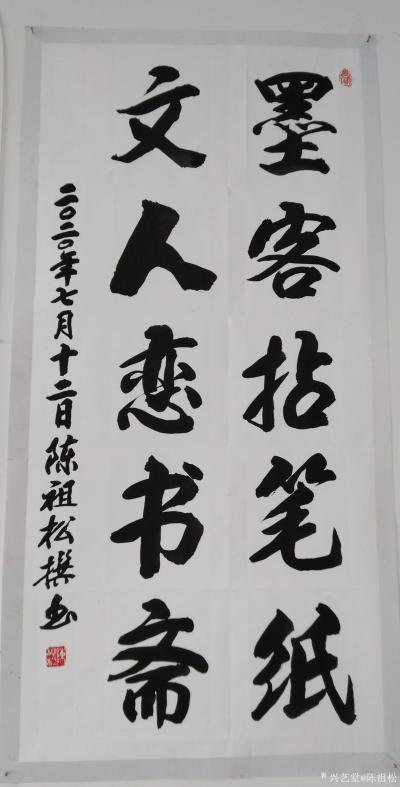 墨客拈笔纸
文人恋书斋
二〇二〇年七月十二日陈祖松撰书
兴艺堂@陈祖松